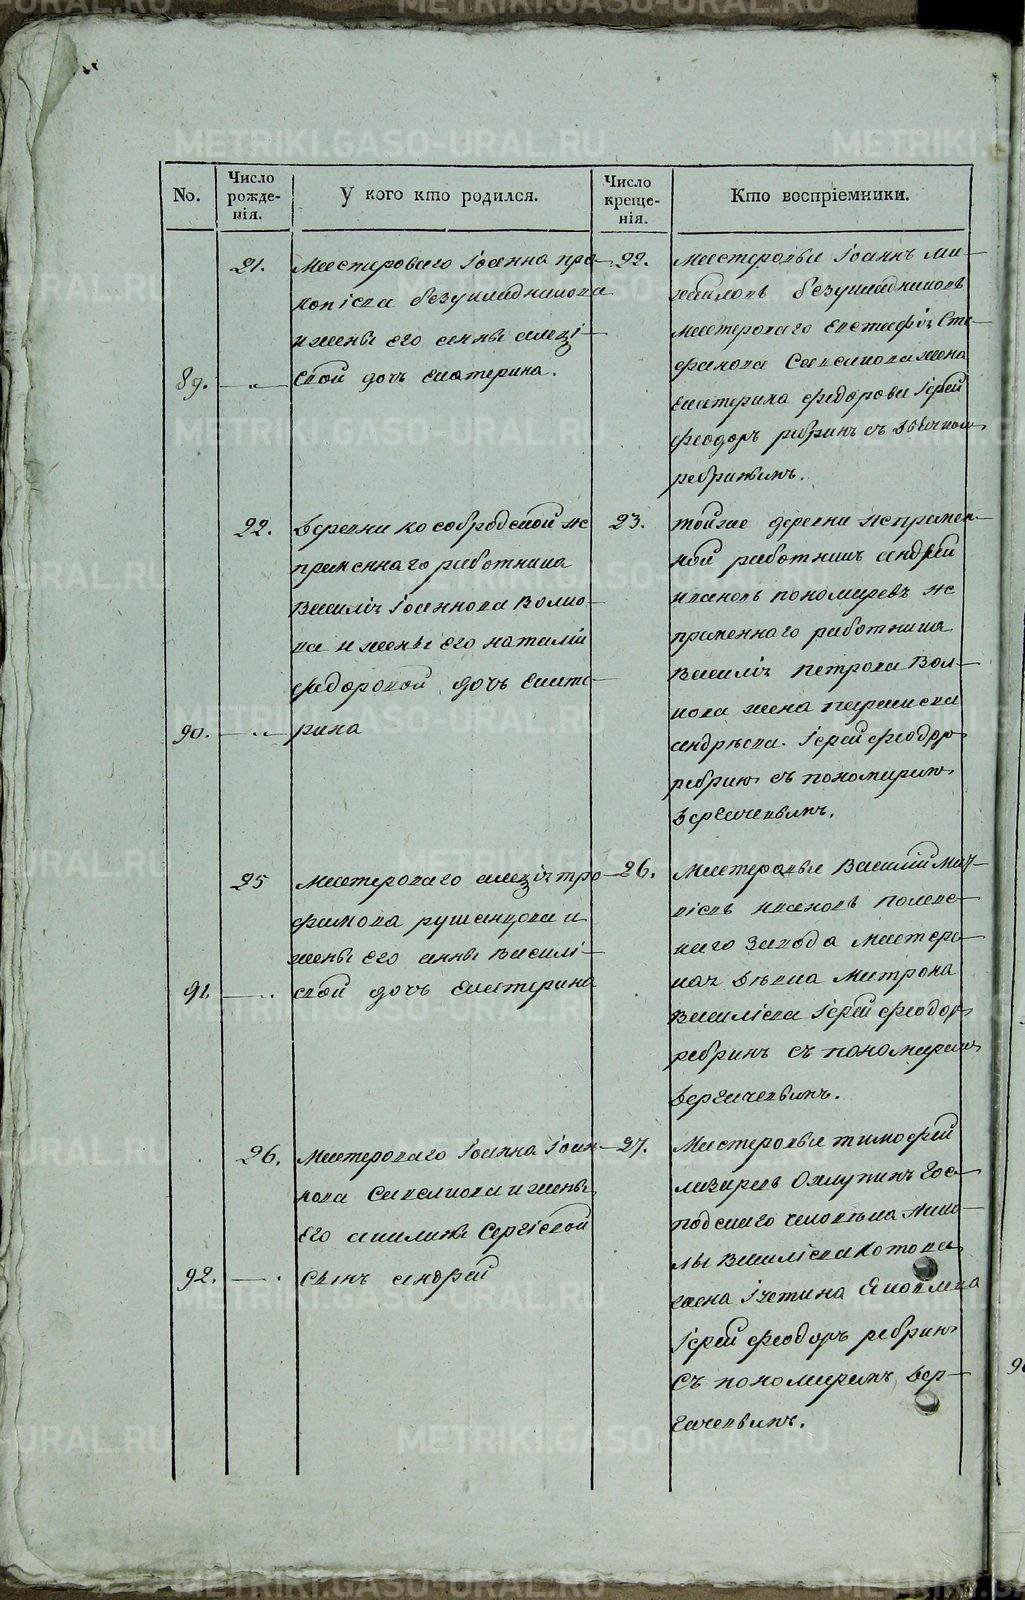 No.
Число рожде-нія.
У кого кто родился.
Число креще-нія.
Кто воспріемники.
89.
21.
Мастероваго Іоанна про-
копіева безукладникова
и жены его анны алеѯі-
евой дочь екатерина.
22.
Мастеровые Іоаннъ ми-
хайловъ безукладниковъ
мастероваго евстафіа Сте-
фанова Савелкова жена
екатерина федорова Іерей
феодоръ ребринъ съ
ребринымъ.
90.
22.
деревни кособродской не
пременнаго работника
Василіа Іоаннова Волко-
ва и жены его наталіи
федоровой дочь екате-
рина
23.
тойже деревни непремен-
ной работникъ андрей
ивановъ пономаревъ не
пременнаго работника
Василіа петрова Вол-
кова жена параскева
андреева. Іерей феодоръ
ребринъ съ пономаремъ
91
25
Мастероваго алеѯіа тро-
фимова рушанцова и
жены его анны Василі-
евой дочь екатерина
26.
Мастеровые Василій
ивановъ полевс-
каго завода мастеро-
ваго девка матрона
Василіева Іерей феодоръ
ребринъ съ пономаремъ
92.
26.
Мастероваго Іоанна Іоан-
нова Савелкова и жены
его акилины Сергіевой
сынъ андрей
27.
Мастеровые тимофей
лазаревъ Гос-
подскаго человека
Василіева котова
жена Іустина Яковлева
Іерей феодоръ ребринъ
съ пономаремъ
METRIKI.GASO-URAL.RU